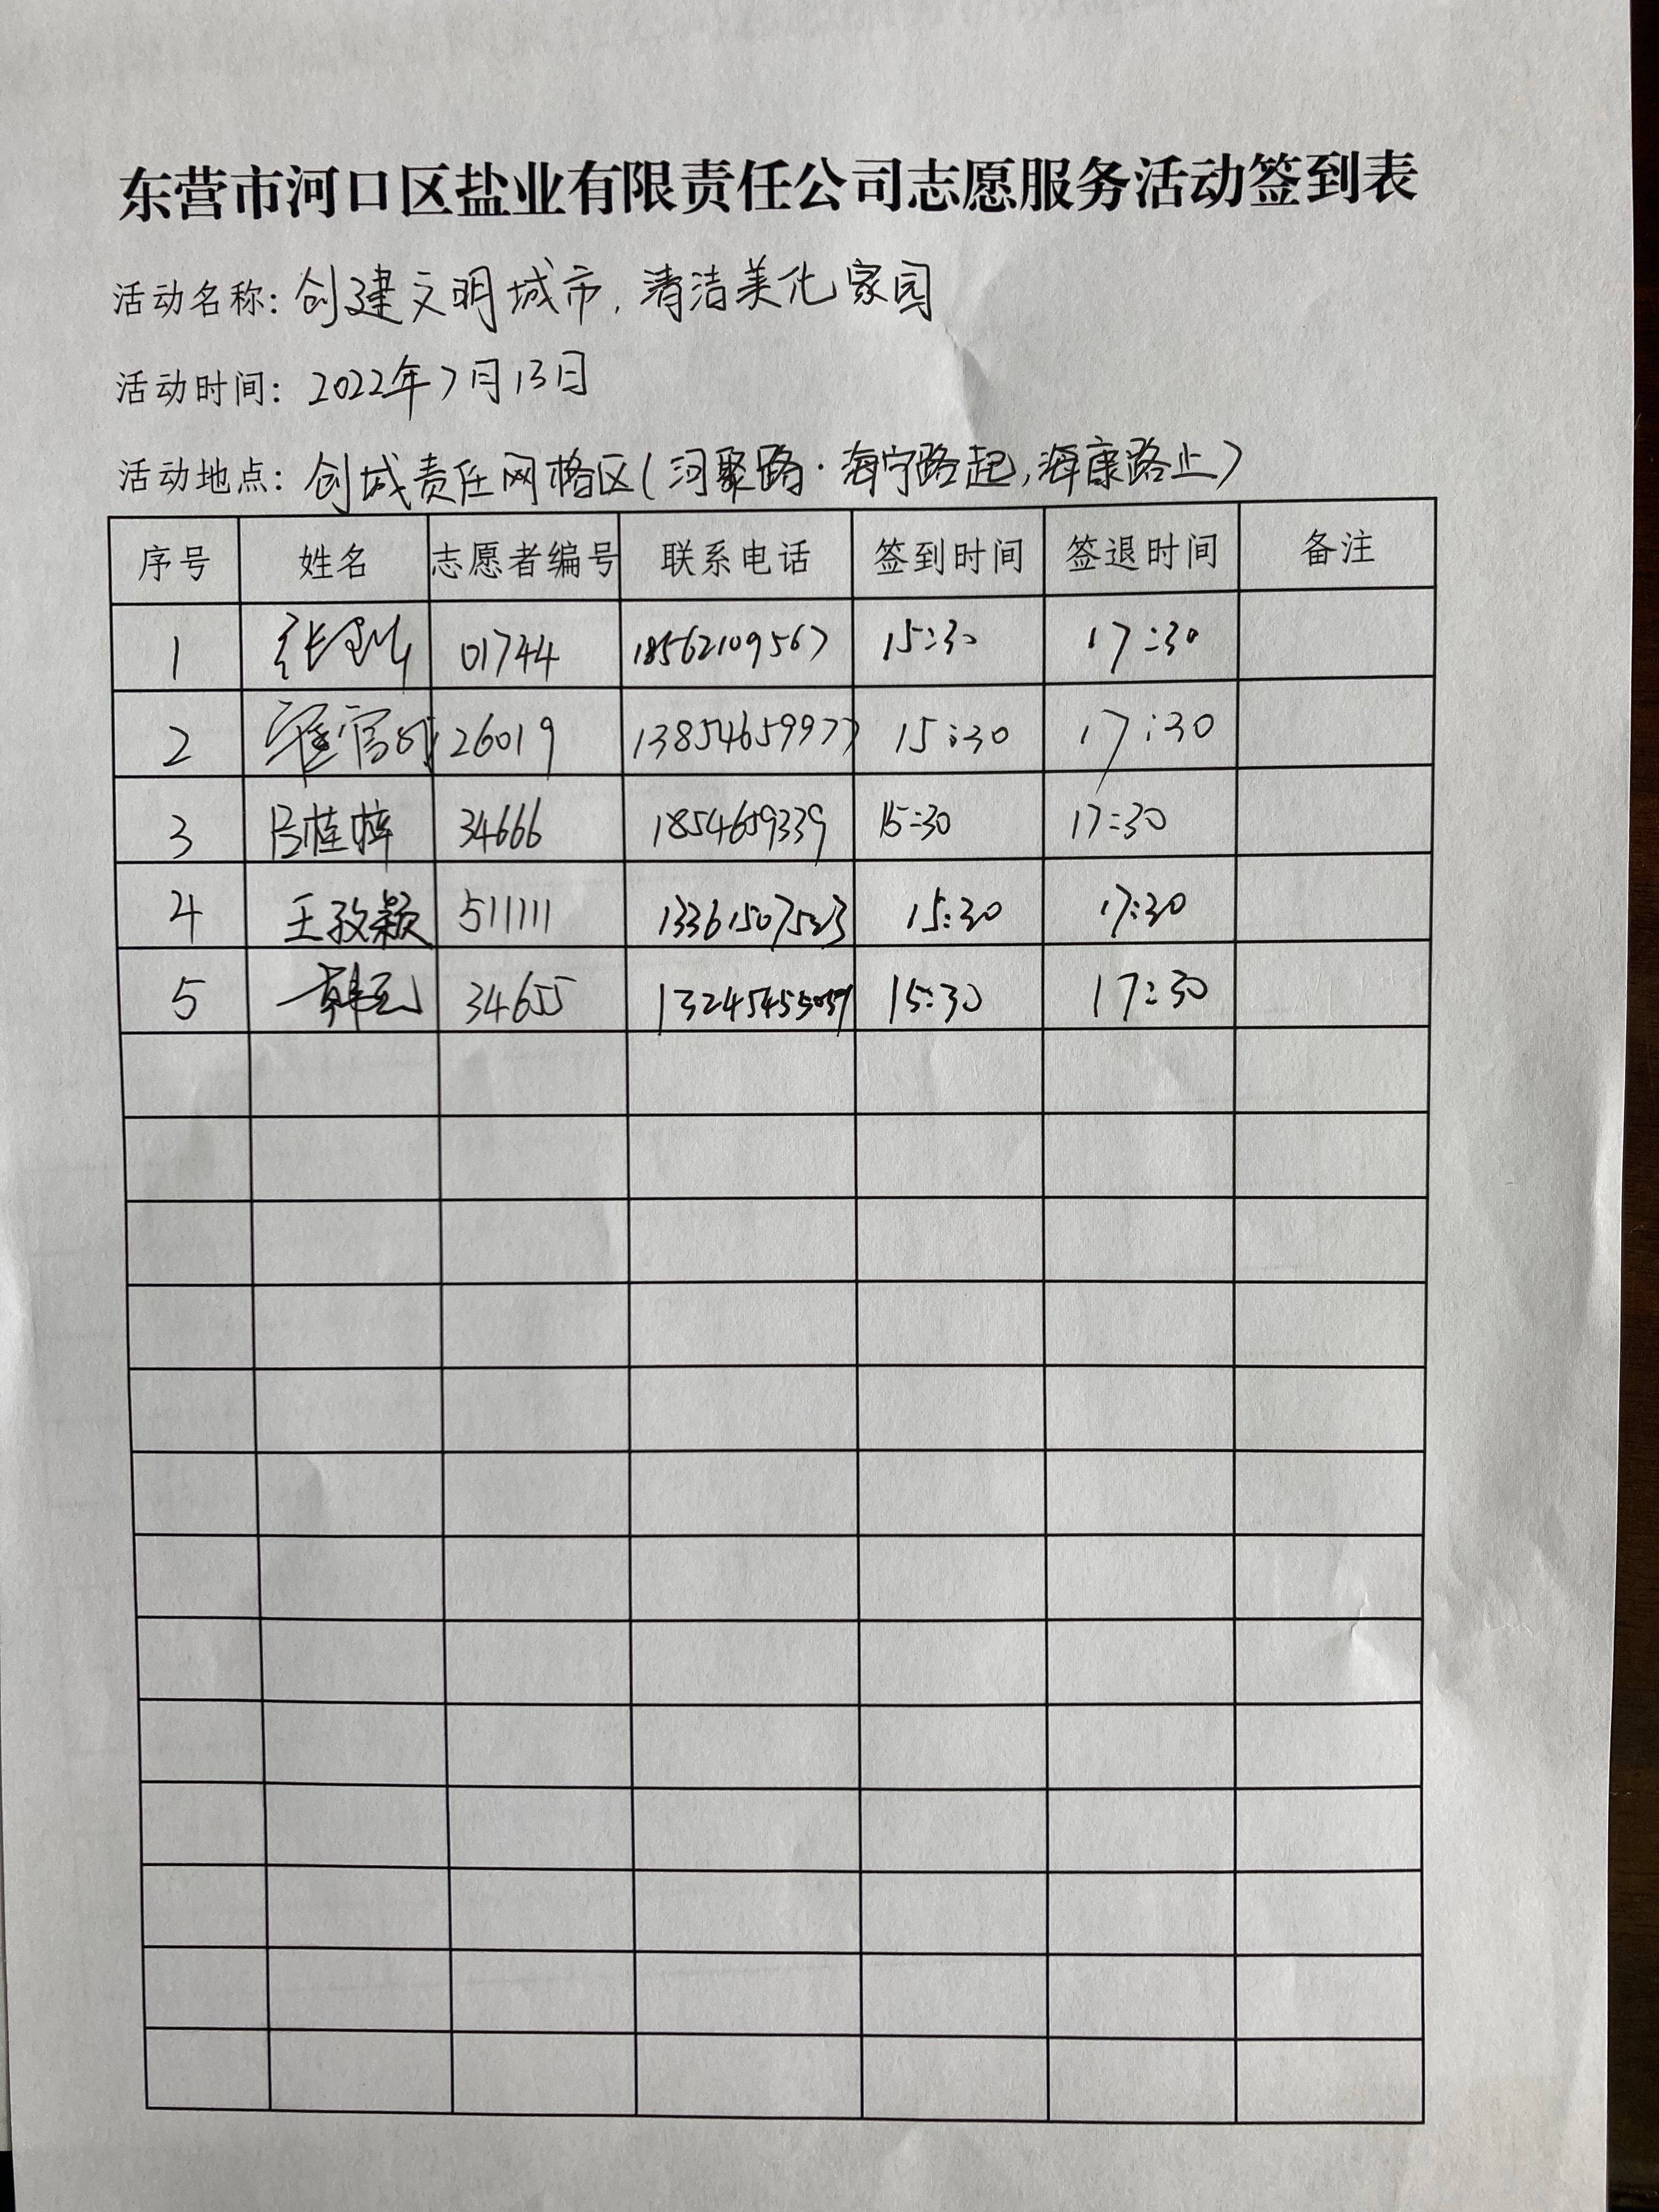 东营市河口区盐业有限责任公司志愿服务活动签到表
活动名称: 创建文明城市,清洁美化家园
活动时间: 2022年7月13日
活动地点: 创城责任网格区(河聚路·海宁路起,海康路止)
序号 姓名 志愿者编号 联系电话 签到时间 签退时间 备注
1 01744 18562109567 15:30 17:30
2 26019 13854659977 15:30 17:30
3 吕桂梓 34666 1854659339 15:30 17:30
4 王孜颖 511111 15:30 17:30
5 34655 15:30 17:30